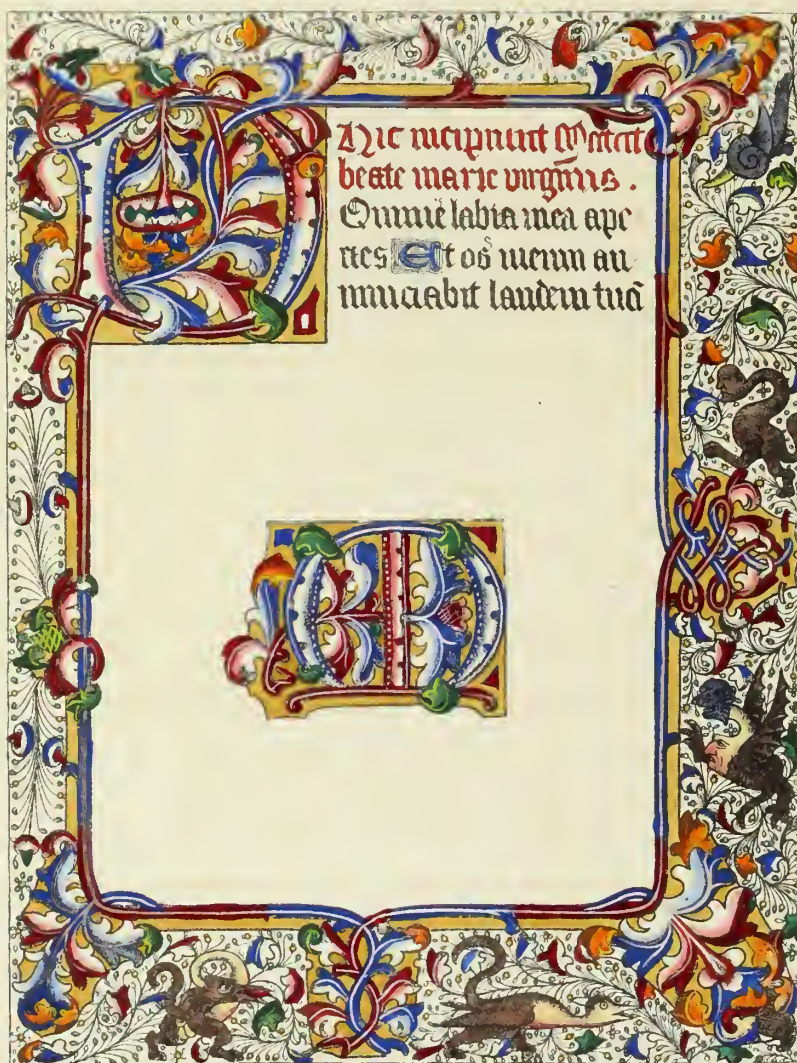 Hic incipiunt Mateīt
beate marie virginis .
D Omine labia mea ape
ries Et os meum an
nunciabit laudem tuā
M